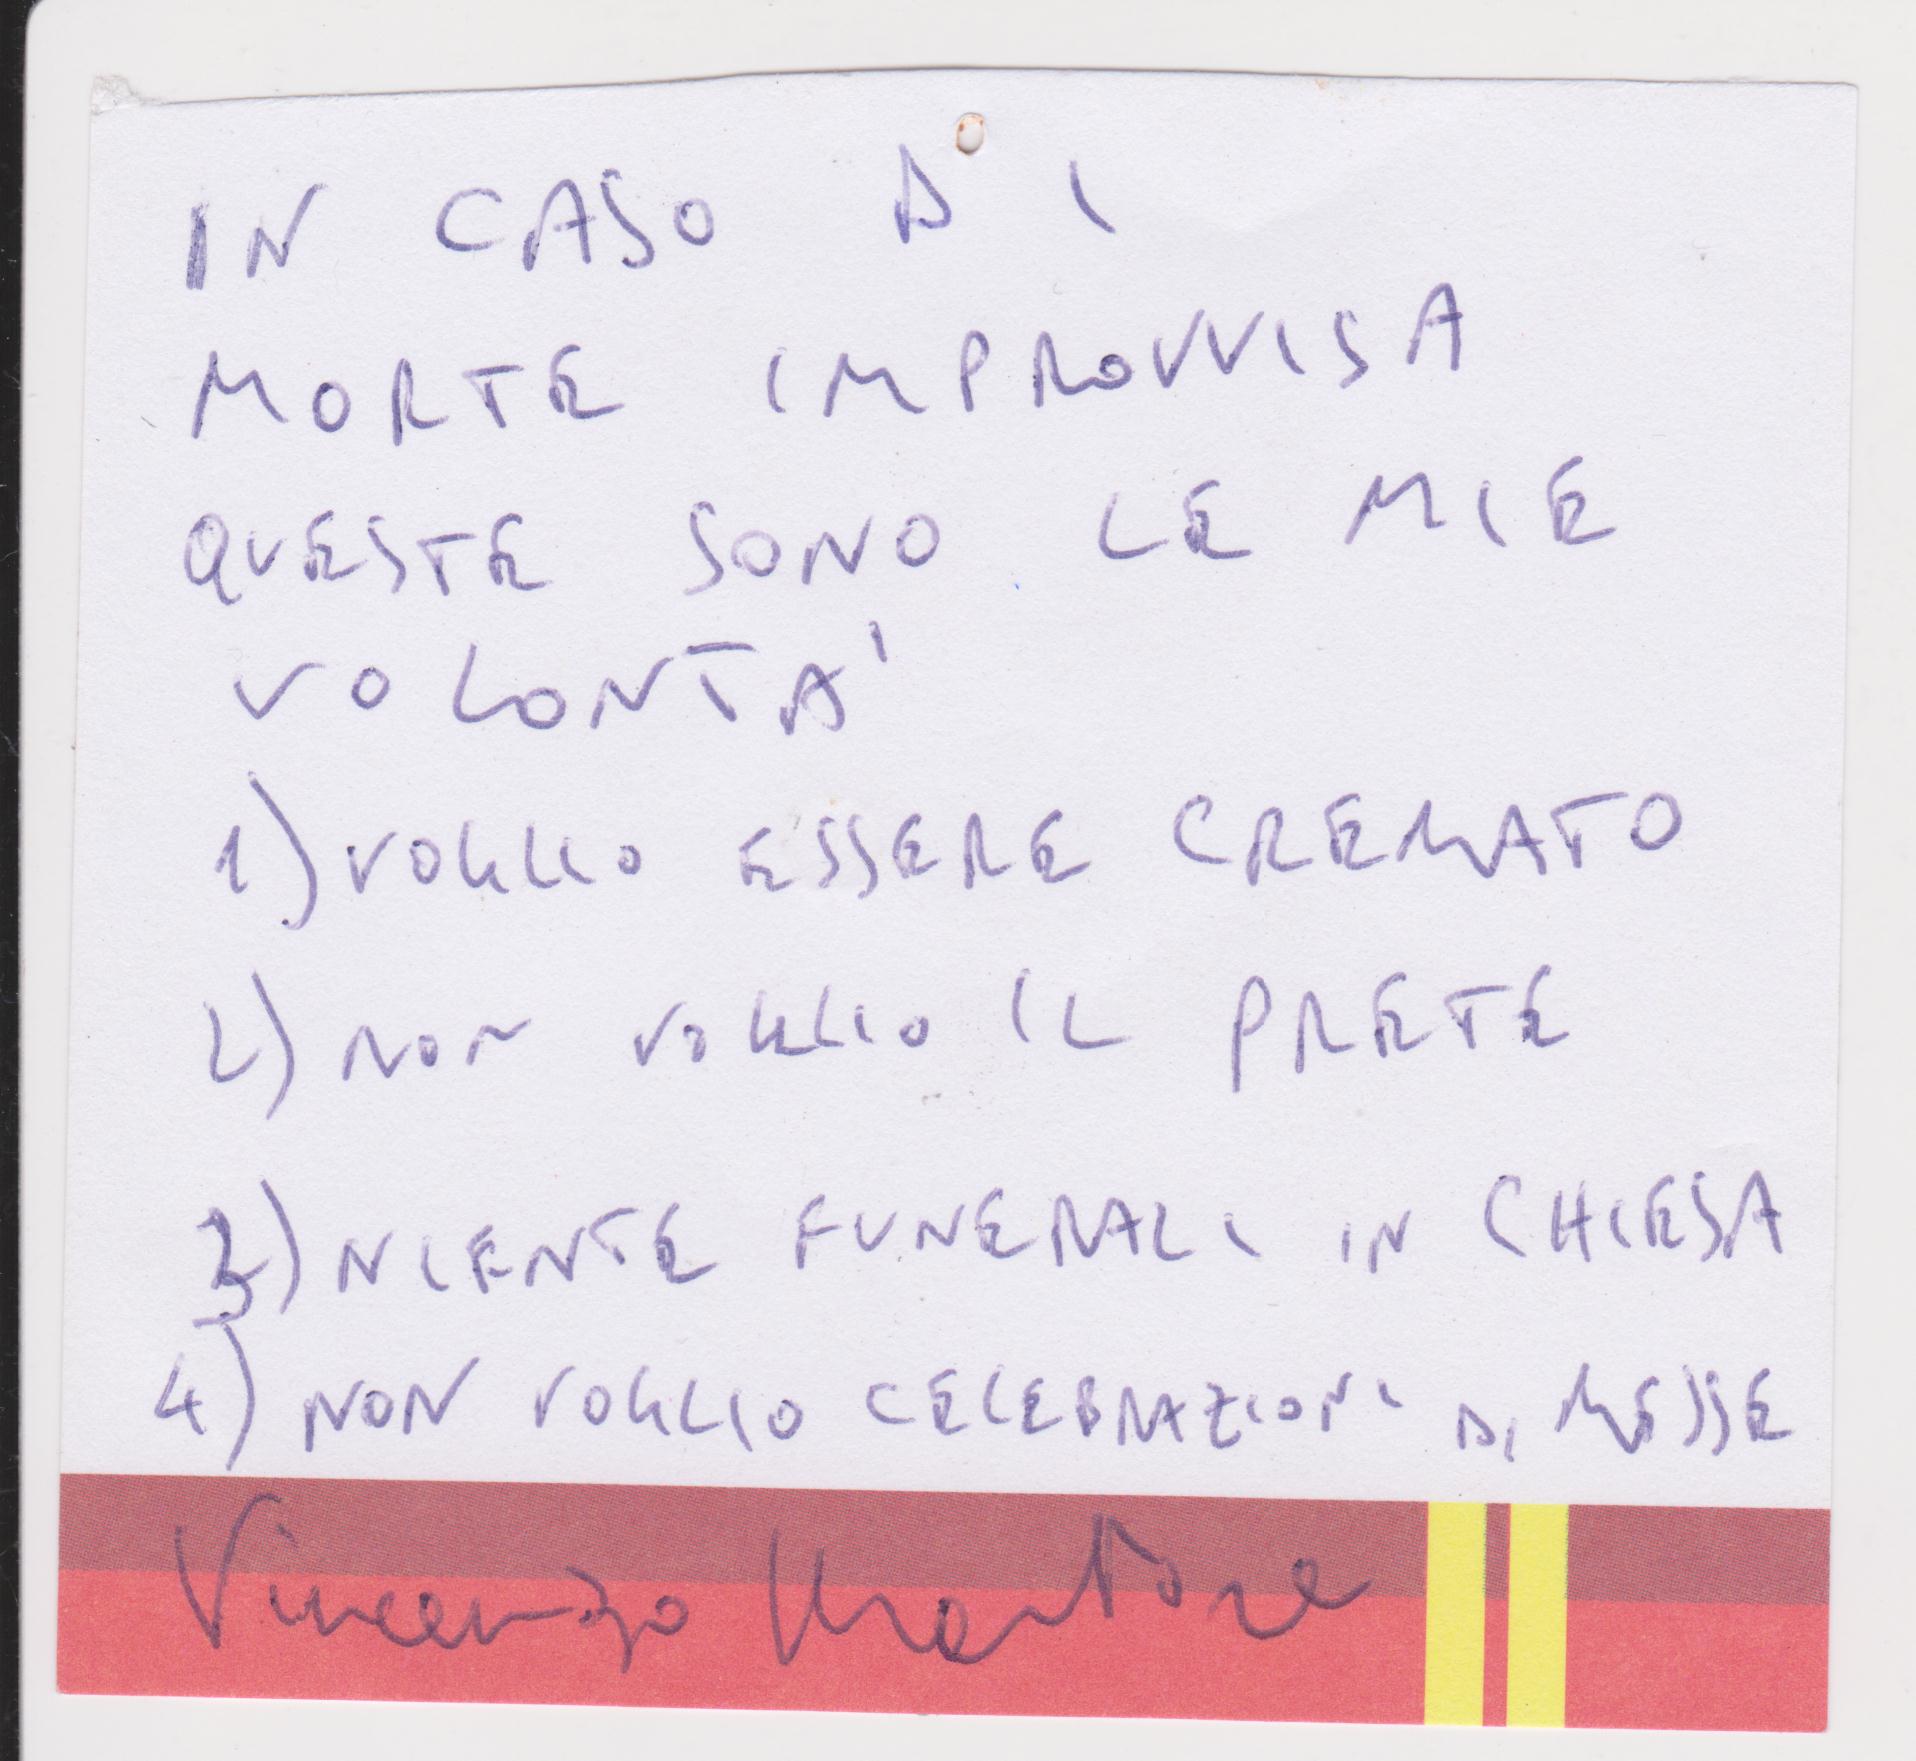 IN CASO DI
MORTE IMPROVVISA
QUESTE SONO LE MIE
VOLONTA'
1) VOGLIO ESSERE CREMATO
2) NON VOGLIO IL PRETE
3) NIENTE FUNERALI IN CHIESA
4) NON VOGLIO CELEBRAZIONI DI MESSE
Vincenzo